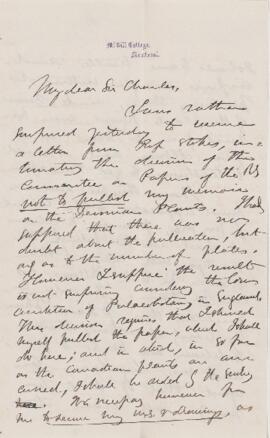 McGill College
Montreal
My dear Sir Charles,
I was rather
surprised yesterday to receive
a letter from Prof Stokes, in-
timating the decision of the
Committee on Papers of the RS
not to publish my memoir
on the Devonian Plants. I had
supposed that there was no
doubt about the publication, but
as to the number of plates.
However I suppose the result
is not surprising considering the low
condition of Palaeobotany in England.
This decision requires that I should
myself publish the paper, which I shall
do here; and in which, in so far
as the Canadian plants are con-
cerned, I shall be aided by the Survey
here. It is necessary however for
me to secure my M.S. & drawings, as